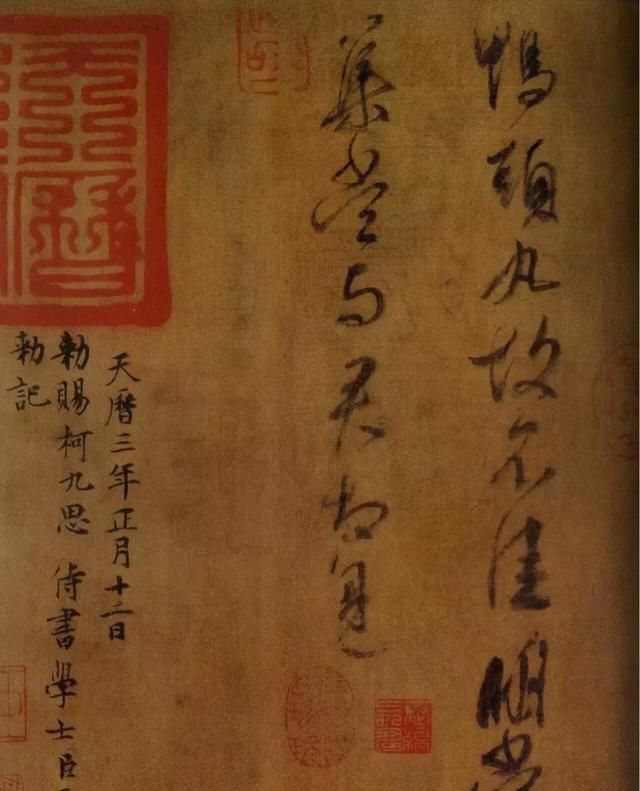 鴨頭丸故不佳明當
集當与君相見
天曆三年正月十二日
勅賜柯九思 侍書學士臣
勅記
天曆